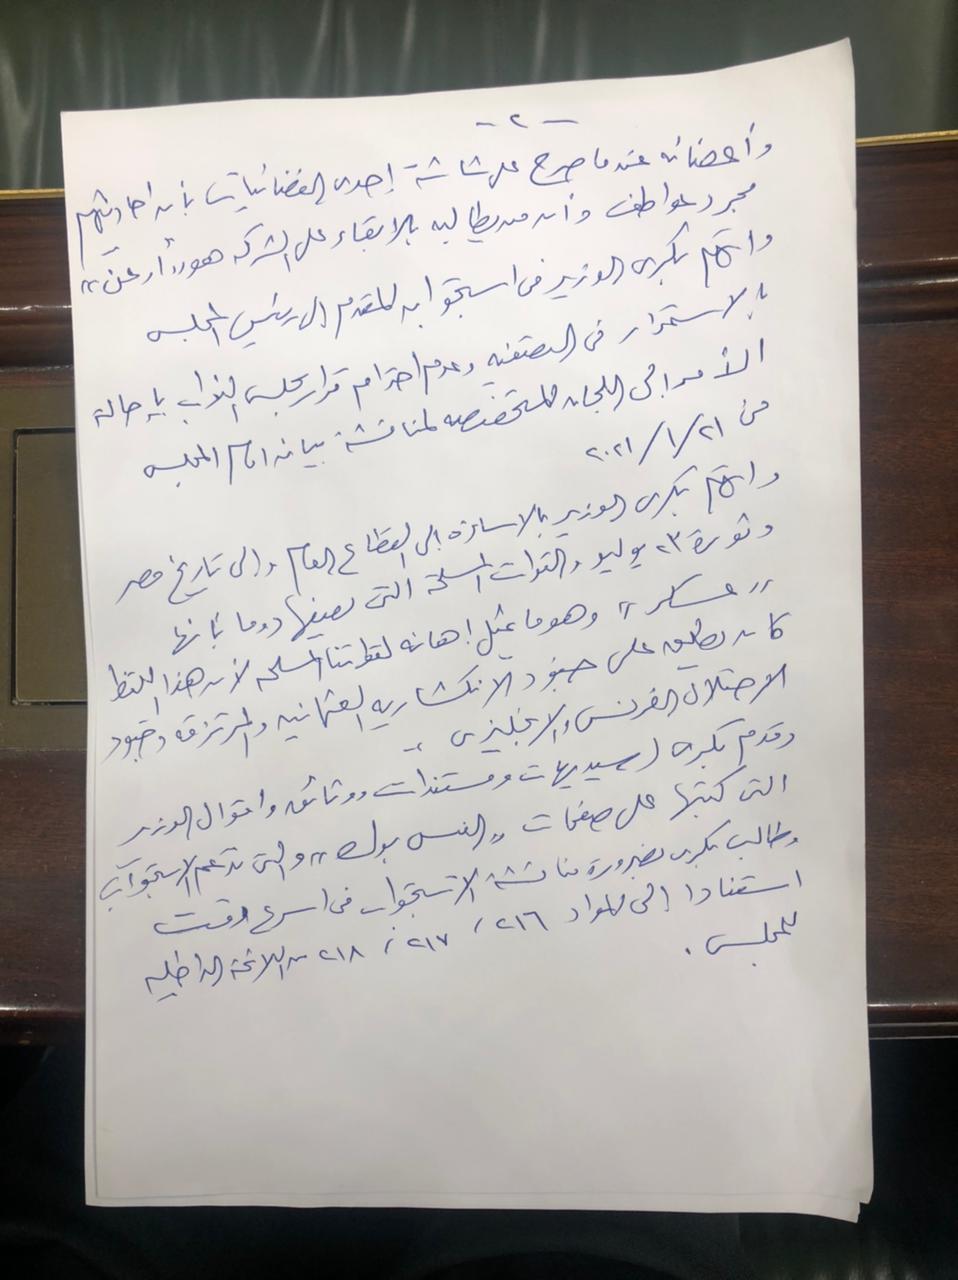 - ٢ -
وأعضائه عندما صرح على شاشة إحدى الفضائيات بأن احاديثهم
مجرد عواطف وأن من يطالبه بالابقاء على الشركه هو "أرعن"
واتهم بكرى الوزير فى استجوابه المقدم إلى رئيس المجلس
بالاستمرار فى التصفيه وعدم احترام قرار مجلس النواب بإحالة
الأمر الى اللجان المتخصصه لمناقشة بيانه امام المجلس
فى ٢٠٢١/١/٢١
واتهم بكرى الوزير بالاساءة إلى القطاع العام وإلى تاريخ مصر
وثورة ٢٣ يوليو والقوات المسلحة التى يصفها دوما بأنها
"عسكر" وهو ما يمثل إهانه لقواتنا المسلحه لأن هذا اللفظ
كان يطلق على جنود الانكشاريه العثمانيه والمرتزقه وجنود
الاحتلال الفرنسى والانجليزى ..
وقدم بكرى سيديهات ومستندات ووثائق واقوال الوزير
التى كتبها على صفحات "الفيس بوك" والتى تدعم الاستجواب
وطالب بكرى بضرورة مناقشة الاستجواب فى اسرع وقت
استنادا إلى المواد ٢١٦، ٢١٧، ٢١٨ من اللائحة الداخليه
للمجلس .